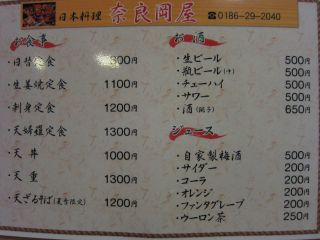 日本料理 奈良岡屋 ☎0186-29-2040
お食事
・日替定食 800円
・生姜焼定食 1100円
・刺身定食 1200円
・天婦羅定食 1300円
・天丼 1000円
・天重 1300円
・天ざるそば(夏季限定) 1200円
お酒
・生ビール 500円
・瓶ビール(中) 500円
・チューハイ 500円
・サワー 500円
・酒(銚子) 650円
ジュース
・自家製梅酒 500円
・サイダー 200円
・コーラ 200円
・オレンジ 200円
・ファンタグレープ 200円
・ウーロン茶 250円